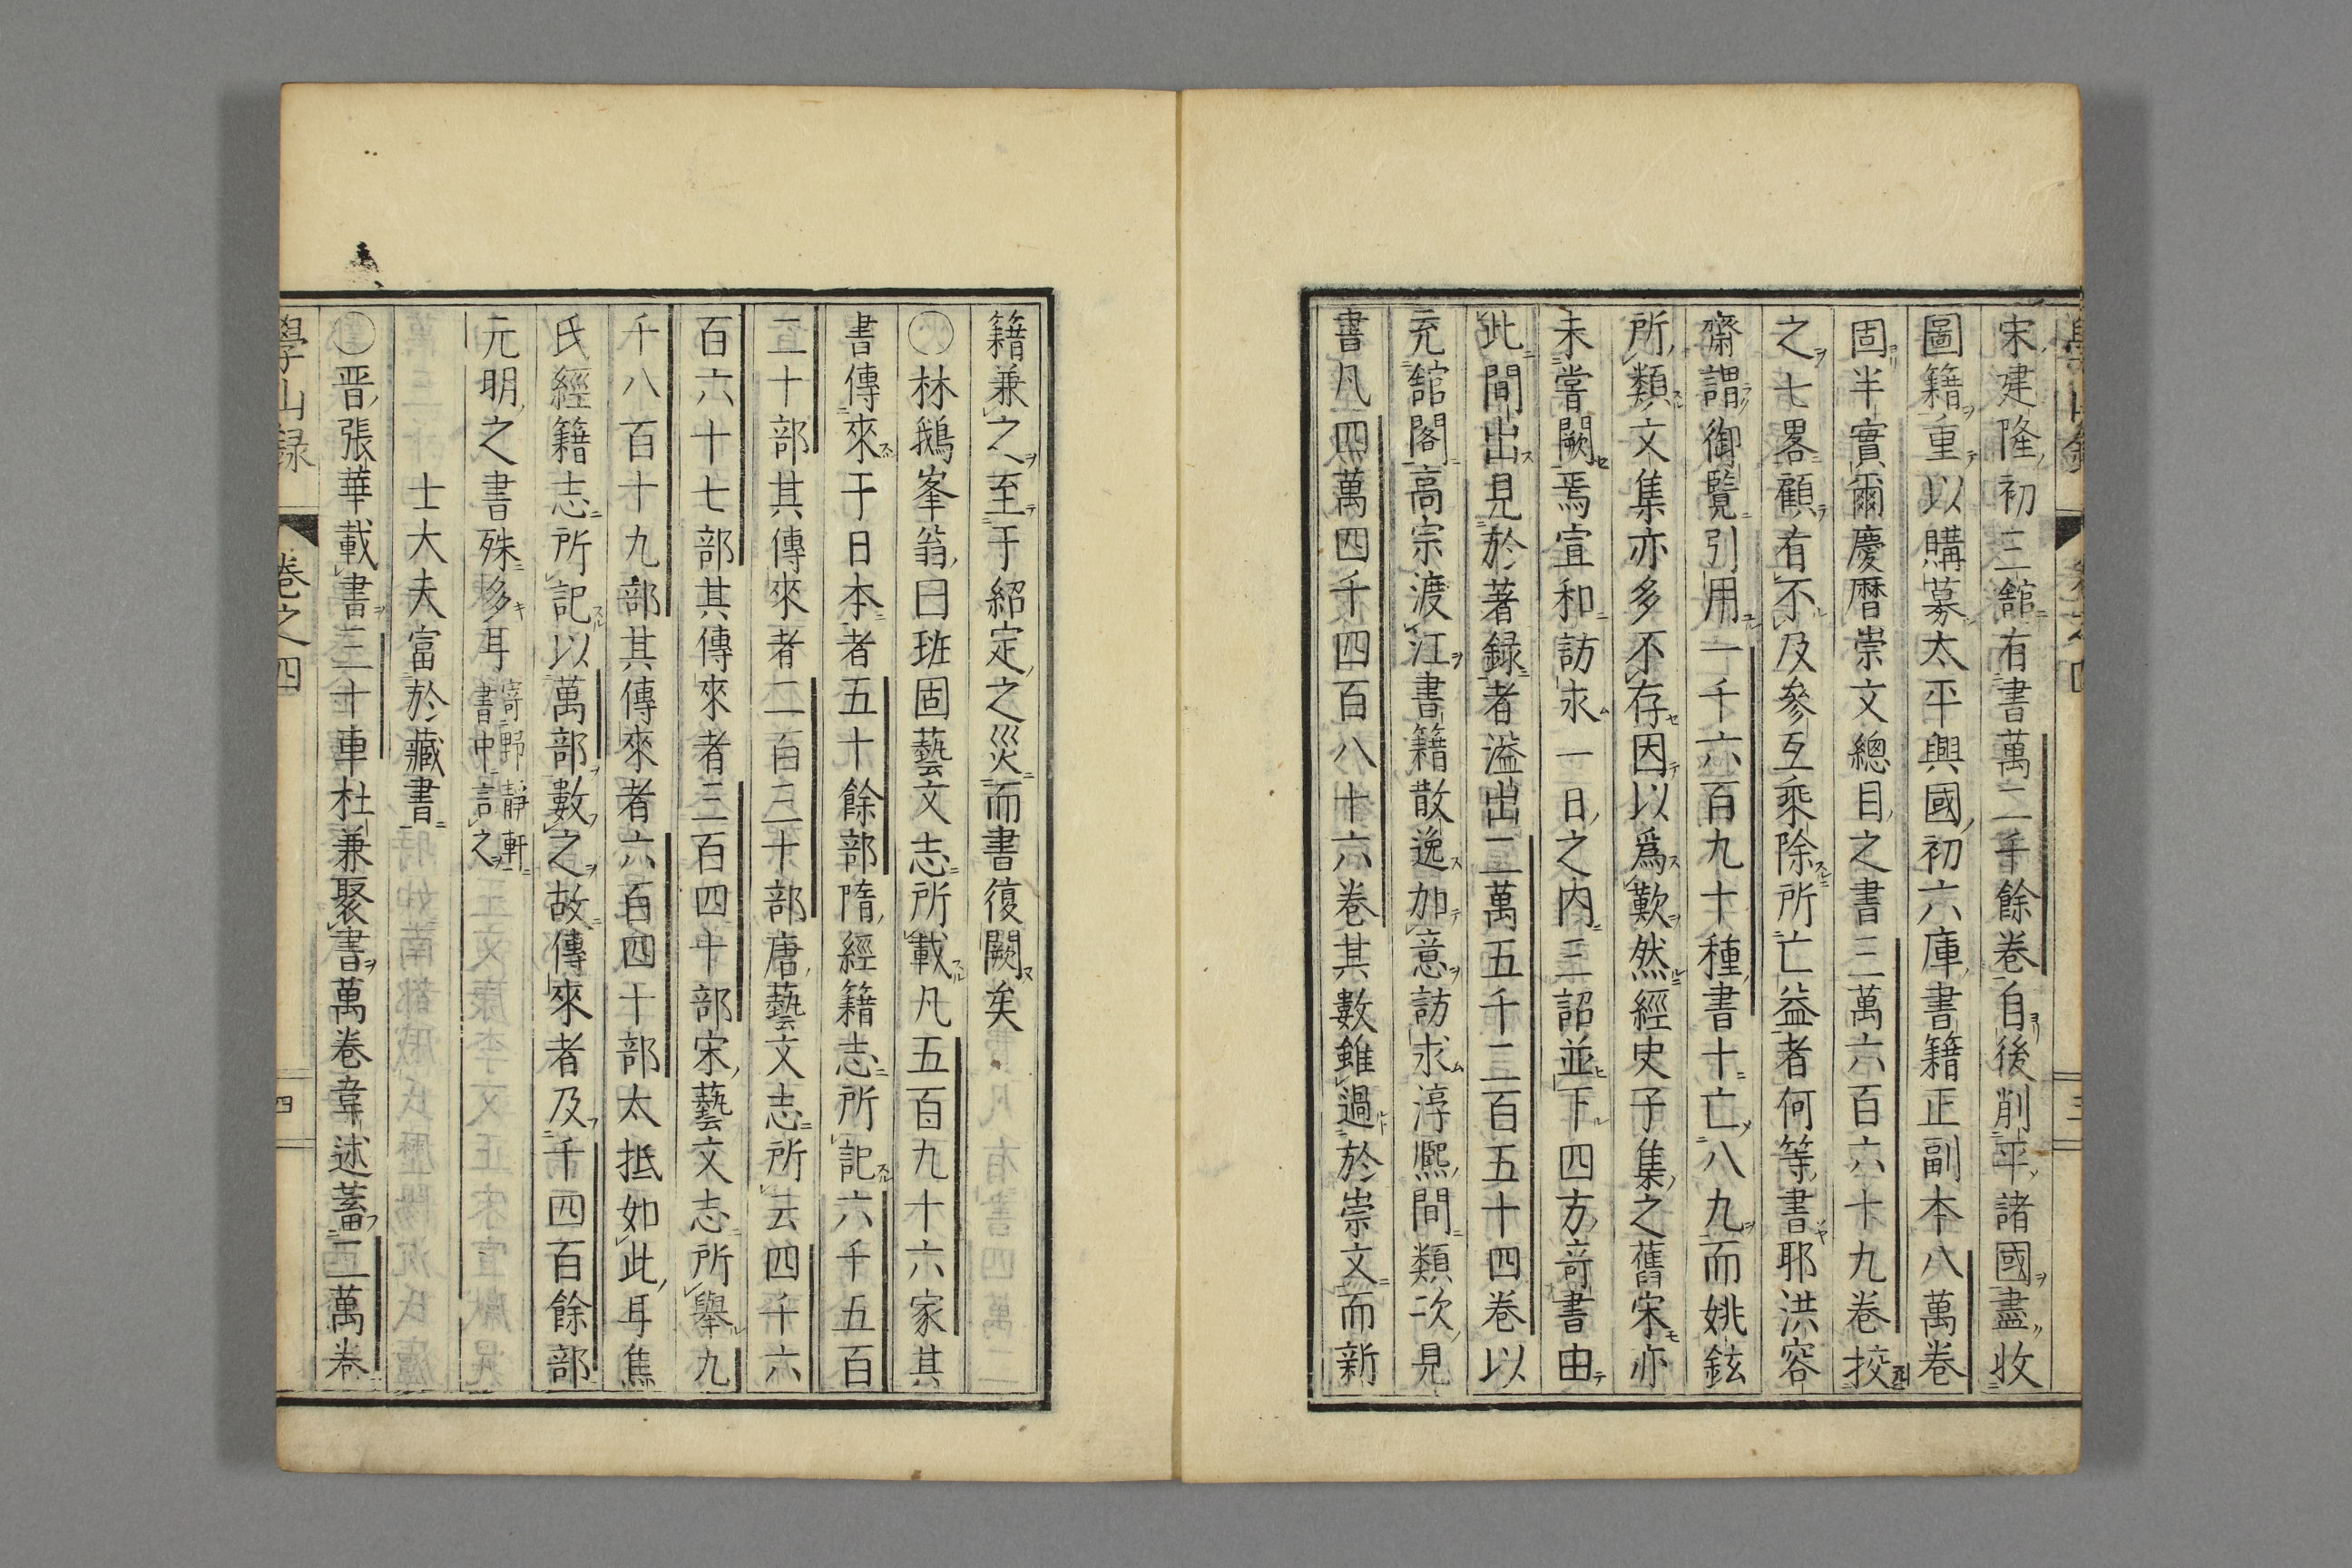 宋建隆初三舘有書萬二千餘卷自後削平諸國盡收
圖籍重以購募太平興國初六庫書籍正副本八萬卷
固半實爾慶暦崇文總目之書三萬六百六十九卷挍
之七畧顧有不及參互乘除所亡益者何等書耶洪容
齋謂御覽引用一千六百九十種書十亡八九而姚鉉
所類文集亦多不存因以爲歎然經史子集之舊宋亦
未嘗闕焉宣和訪求一日之内三詔並下四方竒書由
此間出見於著録者溢出二萬五千二百五十四卷以
充舘閣高宗渡江書籍散逸加意訪求淳熈間類次見
書凡四萬四千四百八十六卷其數雖過於崇文而新
籍兼之至于紹定之災而書復闕矣
〇林鵝峯翁曰班固藝文志所載凡五百九十六家其
書傳來于日本者五十餘部隋經籍志所記六千五百
二十部其傳來者二百三十部唐藝文志所云四千六
百六十七部其傳來者三百四十部宋藝文志所舉九
千八百十九部其傳來者六百四十部太抵如此耳焦
氏經籍志所記以萬部數之故傳來者及千四百餘部
元明之書殊多耳寄野靜軒書中言之
士大夫富於藏書
〇晋張華載書三十車杜兼聚書萬卷韋述蓄二萬卷
學山録 卷之四 四